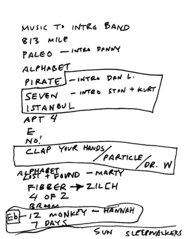 MUSIC TO INTRO BAND
813 MILE
PALEO – INTRO DANNY
ALPHABET
PIRATE – INTRO DAN L.
SEVEN – INTRO STAN + KURT
ISTANBUL
APT 4
E
NO!
CLAP YOUR HANDS/PARTICLE/DR. W
ALPHABET
LOST + FOUND – MARTY
FIBBER → ZILCH
4 OF 2
Eb 12 MONKEY – HANNAH
7 DAYS
SUN SLEEPWALKERS